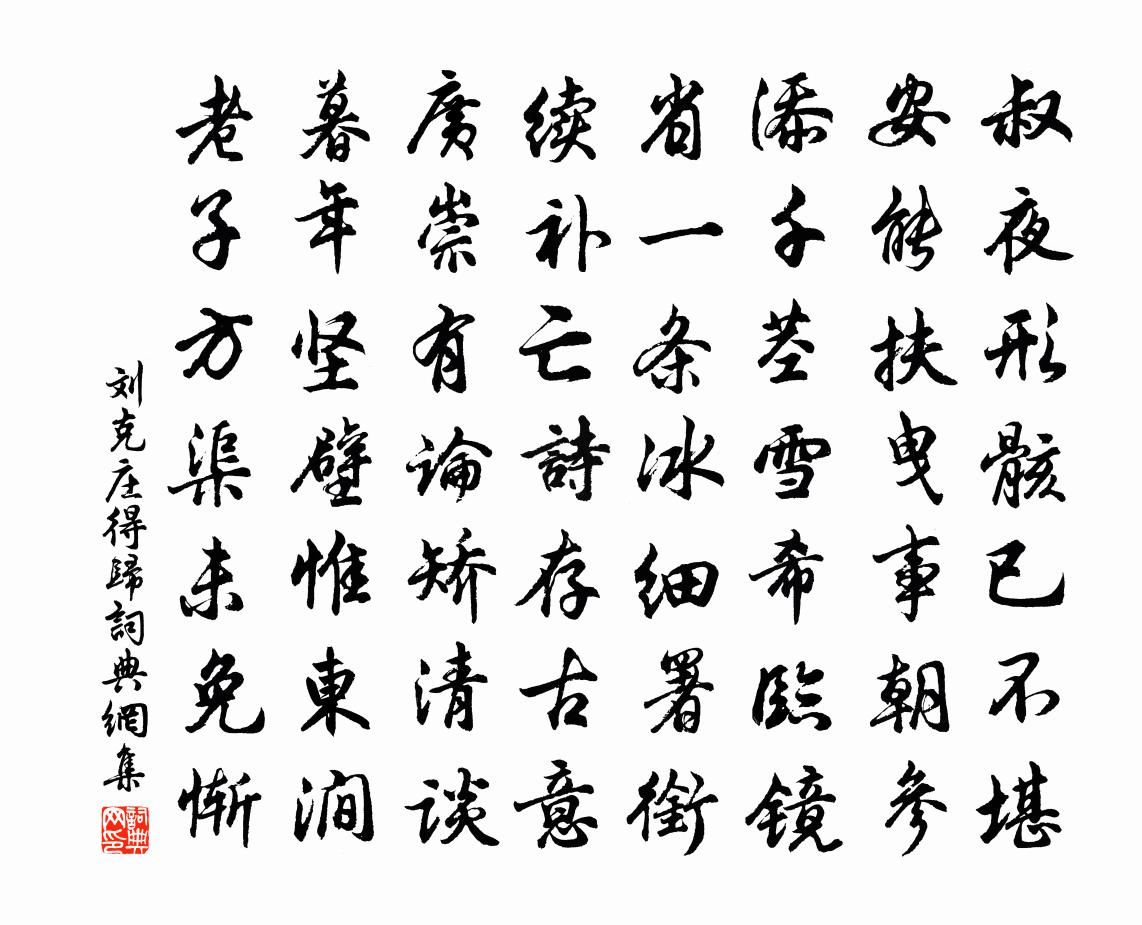 叔夜形骸已不堪
安能扶曳事朝参
添千茎雪希临镜
省一条冰细署銜
续补亡詩存古意
廣崇有論矫清谈
暮年坚壁惟東涧
老子方渠未免惭
刘克庄得歸詞典網集
詞典网印